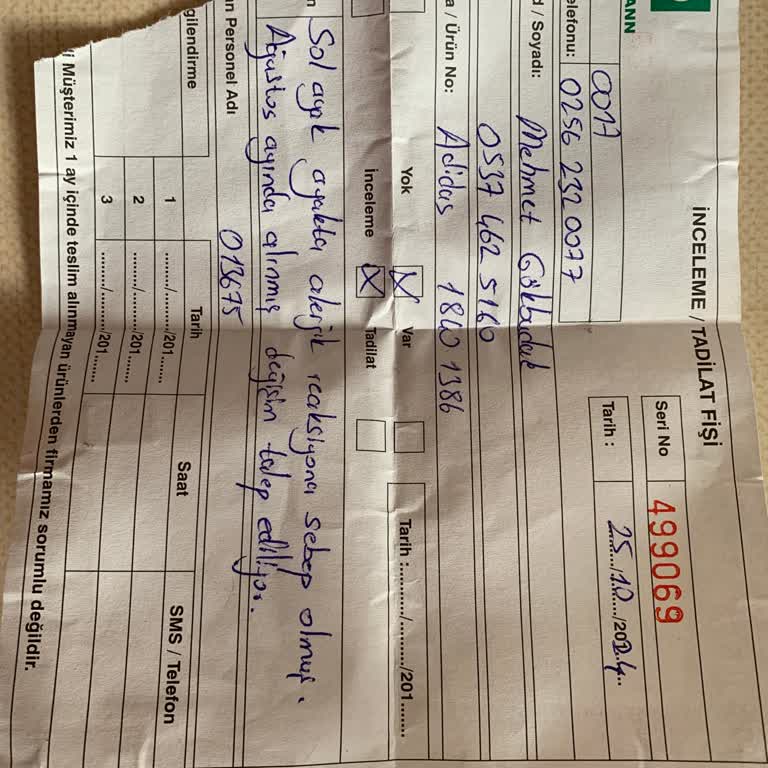 ANN
İNCELEME / TADİLAT FİŞİ
Seri No 499069
Tarih : 25/10/2024
0017
elefonu: 0256 232 0077
d / Soyadı: Mehmet
0537 462 5160
a / Ürün No: Adidas 1840 1386
Yok Var Tarih :......./......./201.......
İnceleme Tadilat
Sol ayak ayakta alerjik reaksiyona sebep olmuş.
Ağustos ayında alınmış değişim talep ediliyor.
an Personel Adı 013675
gilendirme Tarih Saat SMS / Telefon
1 ......./......./201.......
2 ......./......./201.......
3 ......./......./201.......
i Müşterimiz 1 ay içinde teslim alınmayan ürünlerden firmamız sorumlu değildir.